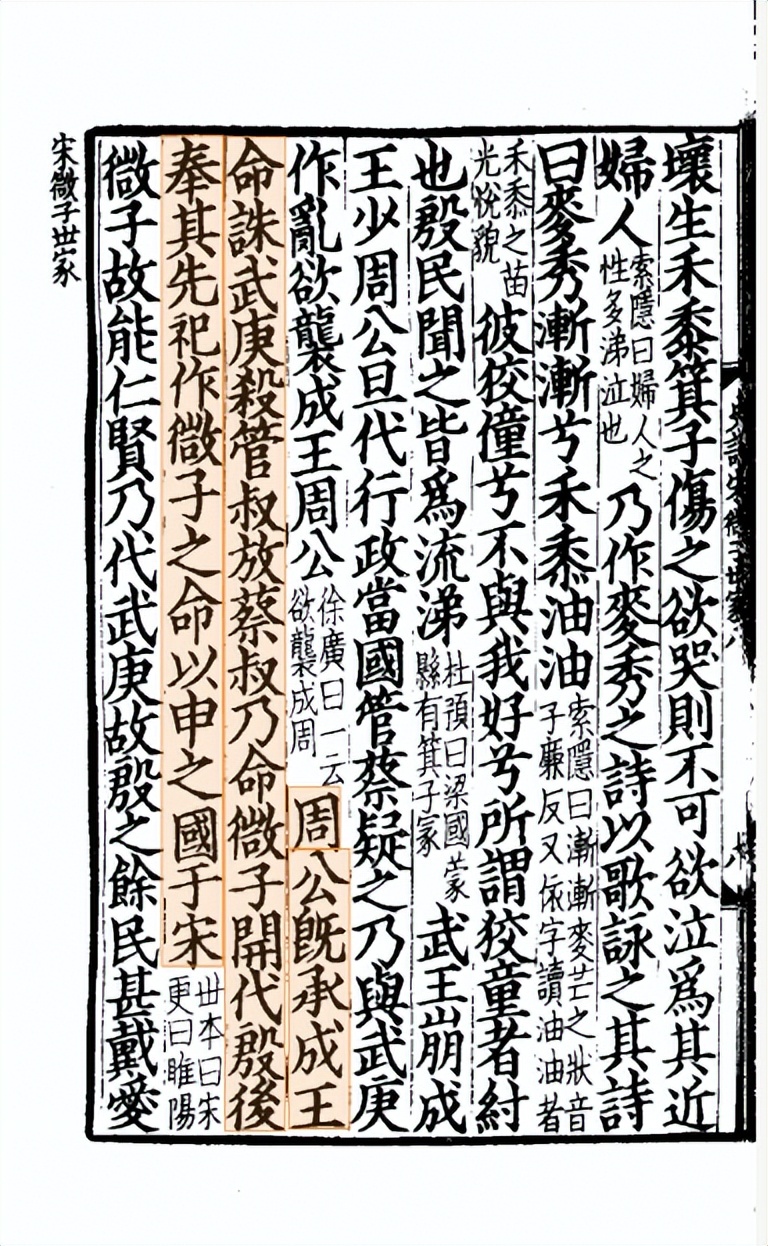 壞生禾黍箕子傷之欲哭則不可欲泣爲其近
婦人
索隱曰婦人之
性多涕泣也
乃作麥秀之詩以歌詠之其詩
曰麥秀漸漸兮禾黍油油
索隱曰漸漸麥芒之狀音
子廉反又依字讀油油者
禾黍之苗
光悅貌
彼狡僮兮不與我好兮所謂狡童者紂
也殷民聞之皆爲流涕
杜預曰梁國蒙
縣有箕子冢
武王崩成
王少周公旦代行政當國管蔡疑之乃與武庚
作亂欲襲成王周公
徐廣曰一云
欲襲成周
周公既承成王
命誅武庚殺管叔放蔡叔乃命微子開代殷後
奉其先祀作微子之命以申之國于宋
世本曰宋
更曰睢陽
微子故能仁賢乃代武庚故殷之餘民甚戴愛
宋微子世家